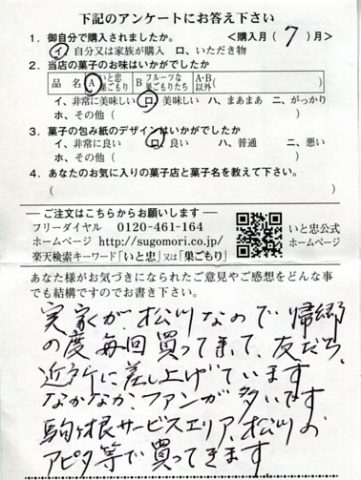 下記のアンケートにお答え下さい
1. 御自分で購入されましたか。 <購入月(7)月>
イ、自分又は家族が購入 ロ、いただき物
2. 当店の菓子のお味はいかがでしたか
品名 A いと忠巣ごもり B フルーツな巣ごもりたち A・B以外( )
イ、非常に美味しい ロ、美味しい ハ、まあまあ ニ、がっかり
ホ、その他( )
3. 菓子の包み紙のデザインはいかがでしたか
イ、非常に良い ロ、良い ハ、普通 ニ、悪い
ホ、その他( )
4. あなたのお気に入りの菓子店と菓子名を教えて下さい。
( )
ご注文はこちらからお願いします
フリーダイヤル 0120-461-164
ホームページ http://sugomori.co.jp/
楽天検索キーワード「いと忠」又は「巣ごもり」
いと忠公式
ホームページ
あなた様がお気づきになられたご意見やご感想をどんな事
でも結構ですのでお書き下さい。
実家が、松川なので、帰郷
の度毎回買ってきて、友だち、
近所に差し上げています
なかなか、ファンが多いです
駒ヶ根サービスエリア、松川の
アピタ等で買ってきます